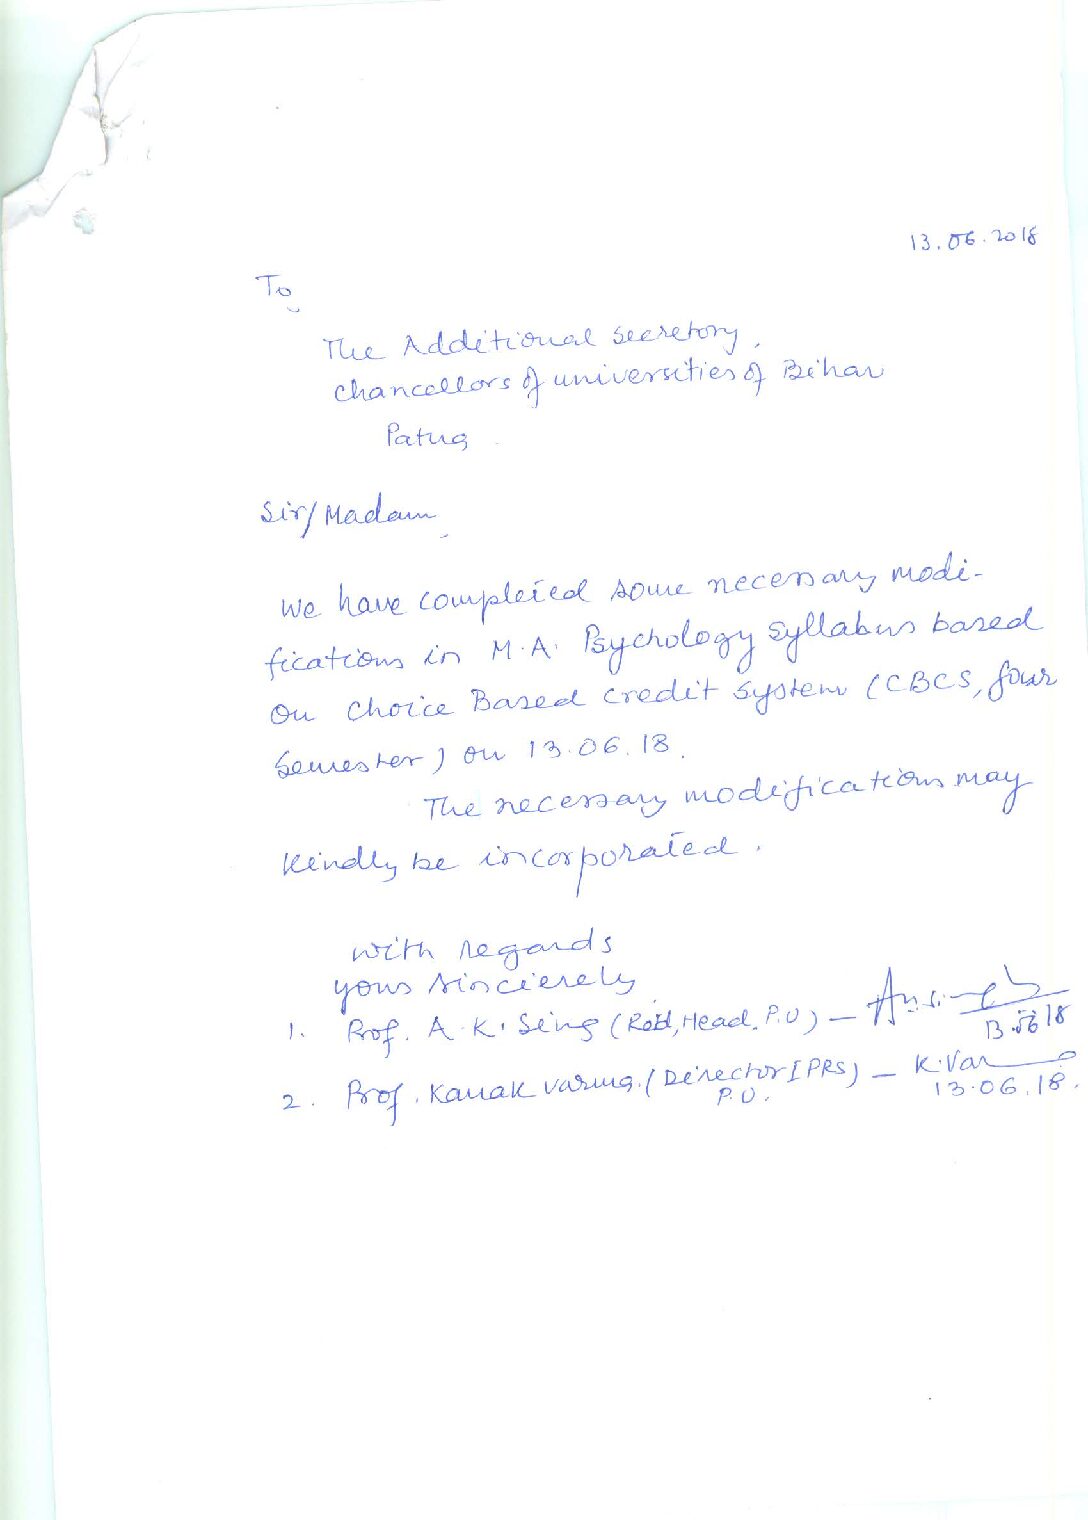 13.06.2018
To
The Additional Secretory,
Chancellors of universities of Bihar
Patna
Sir/Madam
We have completed some necessary modi-
fications in M.A. Psychology syllabus based
on Choice Based Credit System (CBCS, four
Semester) on 13.06.18.
The necessary modifications may
kindly be incorporated.
With regards
yours sincierely
1. Prof. A.K. Sing (Retd, Head, P.U) –
13.06.18
2. Prof. Kanak Varma. (Director IPRS) – K.Var
P.U.
13.06.18.